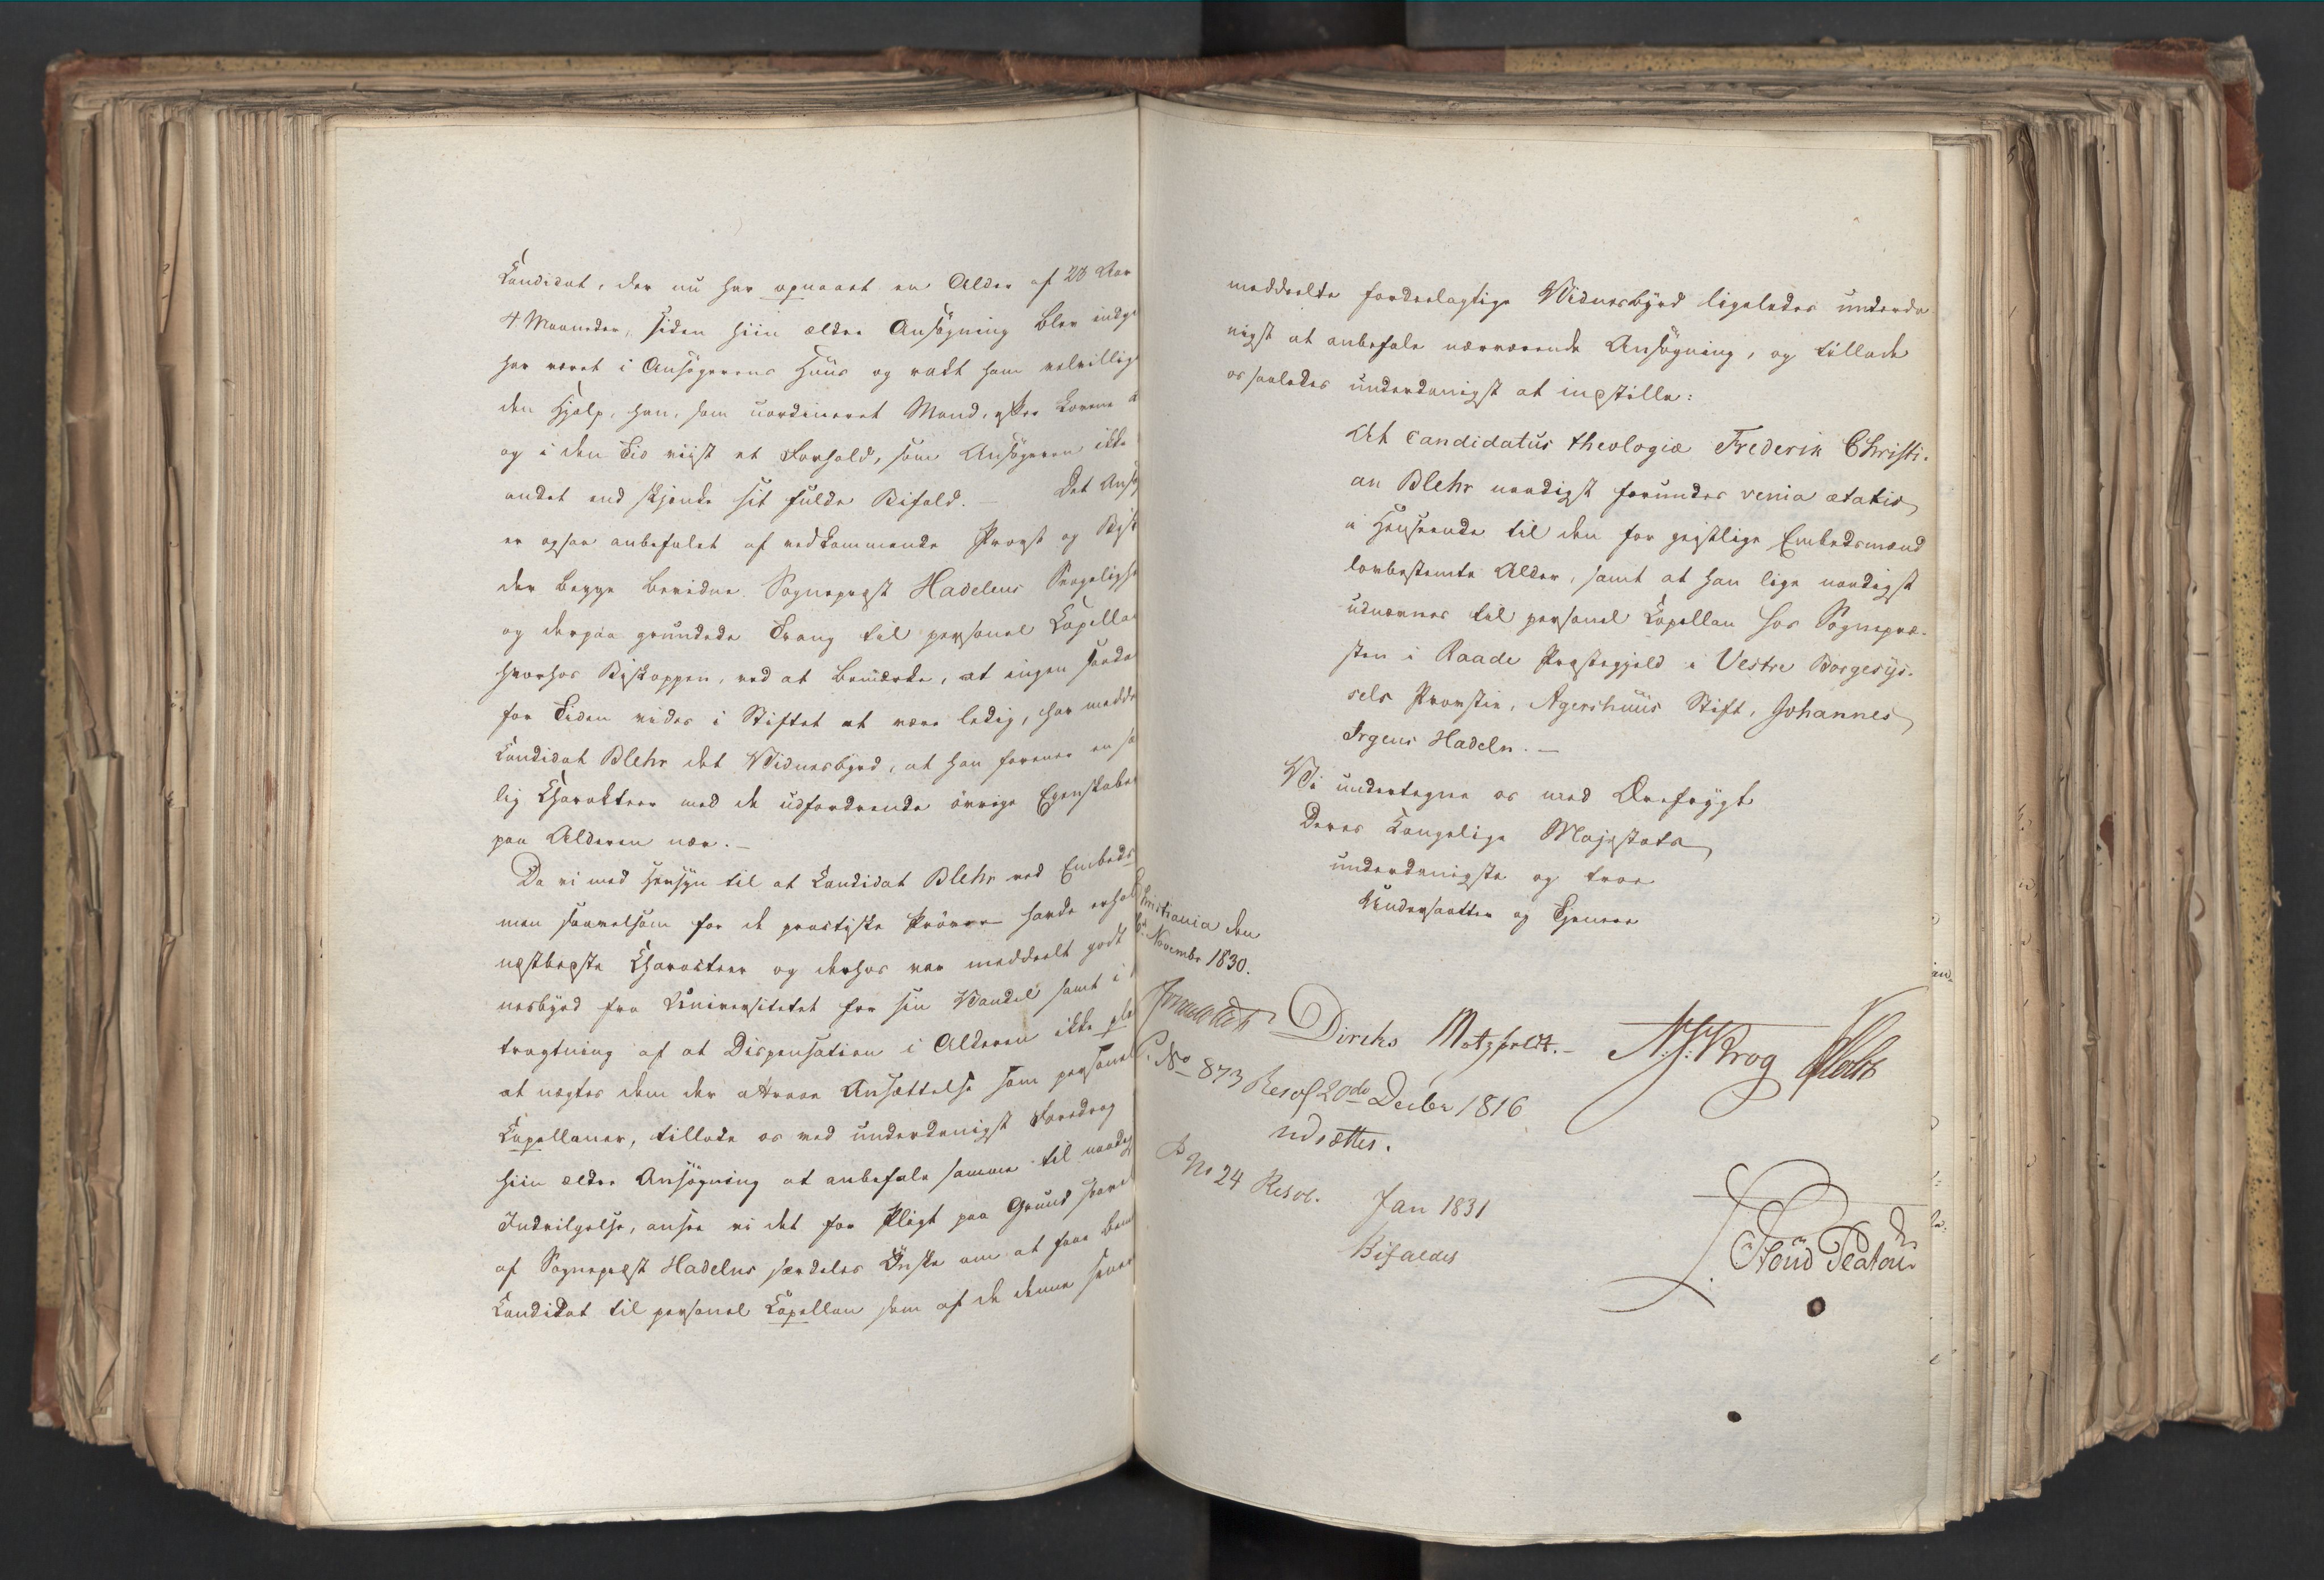 Candidat, der nu har opnaaet en Alder af 28 Aar
4 Maaneder, siden hiin ældre Ansøgning blev indgi
har været i Ansøgerens Huus og rakt ham velvillig
den Hjelp, han, som uordineret Mand, efter Lovene
og i den Tid viist et Forhold, som Ansøgeren ikke
andet end skjenke sit fulde Bifald. — Det Ansø
er ogsaa anbefalet af vedkommende Provst og Bisk
der begge bevidne Sognepræst Hadelns Svagelighe
og derpaa grundede Trang til personel Capella
hvorhos Biskoppen, ved at bemærke, at ingen saada
for Tiden vides i Stiftet at være ledig, har meddee
Candidat Blehr det Vidnesbyrd, at han forener en sæ
lig Charakteer med de udfordrende øvrige Egenskaber
paa Alderen nær. —
Da vi med Hensyn til at Candidat Blehr ved Embeds
men saavelsom for de practiske Prøver havde erhol
næstbedste Charakteer og derhos var meddeelt godt
nesbyrd fra Universitetet for sin Vandel samt i
tragtning af at Dispensation i Alderen ikke ple
at nægtes dem der attraae Ansættelse som personel
Capellaner, tillode os ved underdanigst Foredrag
hiin ældre Ansøgning at anbefale samme til naadig
Indvilgelse, ansee vi det for Pligt paa Grund saavel
af Sognepræst Hadelns særdeles Ønske om at faae bem
Candidat til personel Capellan som af de denne senere
meddeelte fordeelagtige Vidnesbyrd ligeledes underda
nigst at anbefale nærværende Ansøgning, og tillade
os saaledes underdanigst at indstille:
At Candidatus theologiæ Frederik Christi-
an Blehr naadigst forundes venia ætatis
i Henseende til den for geistlige Embedsmænd
lovbestemte Alder, samt at han lige naadigst
udnævnes til personel Capellan hos Sognepræ-
sten i Raade Præstegjeld i Vestre Borgesys-
sels Provstie, Agershuus Stift, Johannes
Irgens Hadeln. —
Vi undertegne os med Ærefrygt
Deres Kongelige Majestæts
underdanigste og troe
Undersaatter og Tjenere
Christiania den
Novembr 1830.
Diriks Motzfeldt. — N. J. Krog
No 873 Resol 20de Decbr 1816
udsættes.
No 24 Resol. Jan 1831
Bifaldes